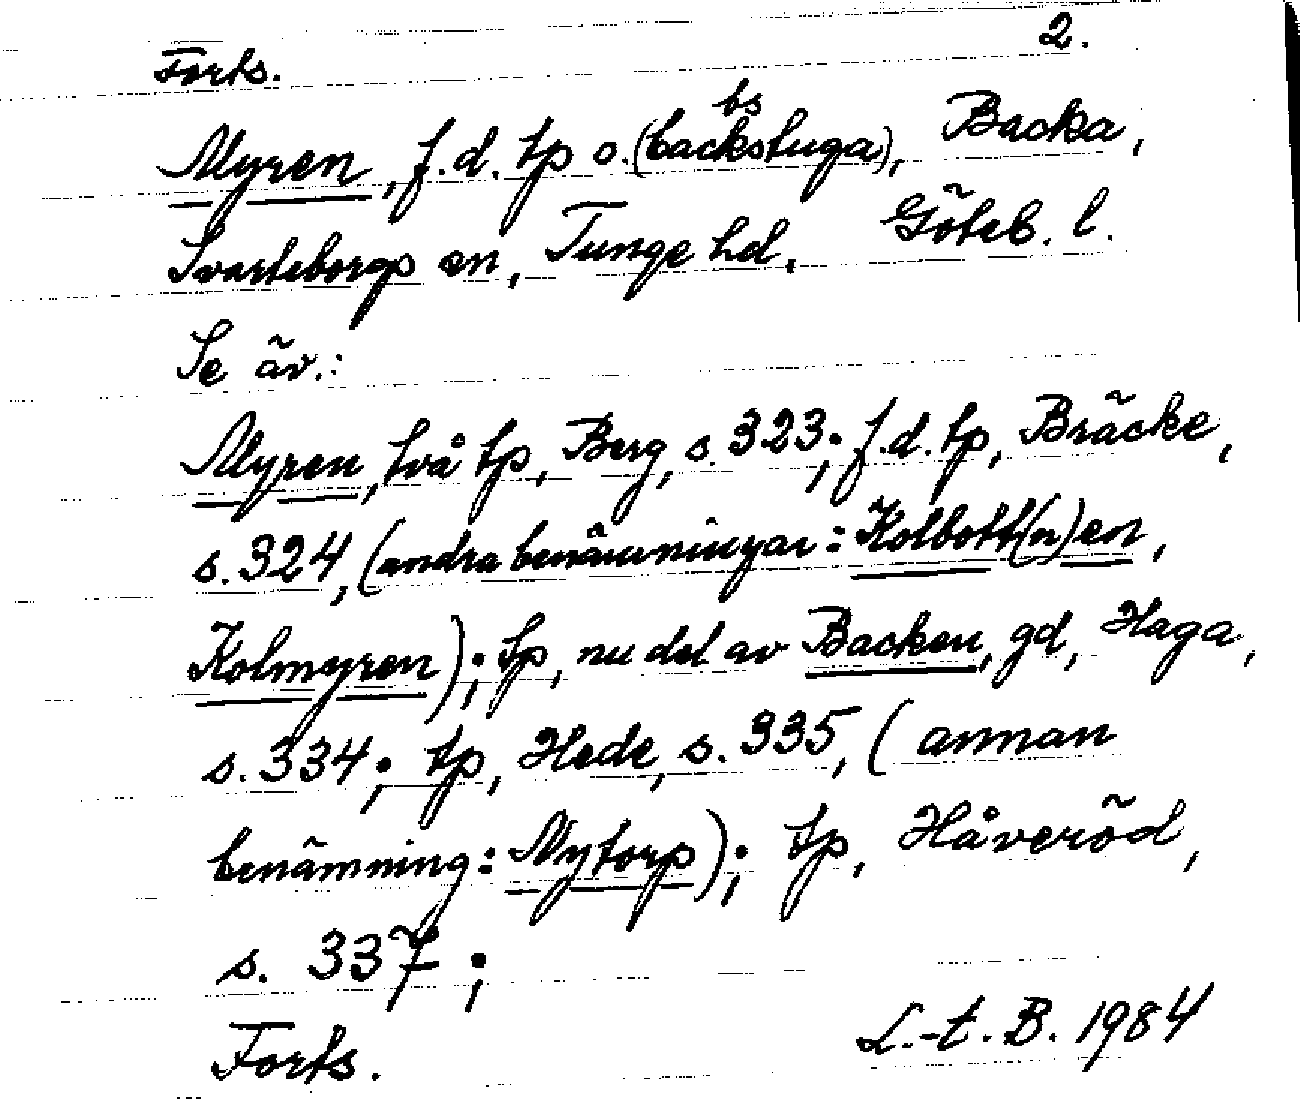 Forts. 2.
bs
Myren, f.d. tp o. (backstuga), Backa,
Svarteborgs sn, Tunge hd, Göteb. l.
Se äv.:
Myren, två tp, Berg, s. 323; f.d. tp, Bräcke,
s. 324, (andra benämningar: Kolbott(n)en,
Kolmyren); tp, nu del av Backen, gd, Haga,
s. 334; tp, Hede, s. 335, (annan
benämning: Nytorp); tp, Håveröd,
s. 337;
Forts. L.-t. B. 1984